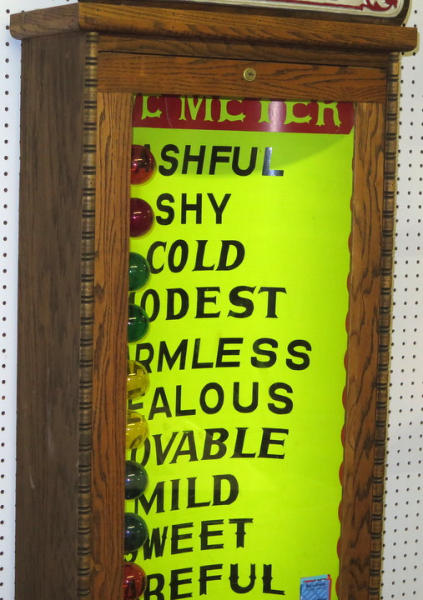 E METER
ASHFUL
SHY
COLD
MODEST
ARMLESS
EALOUS
OVABLE
MILD
SWEET
AREFUL